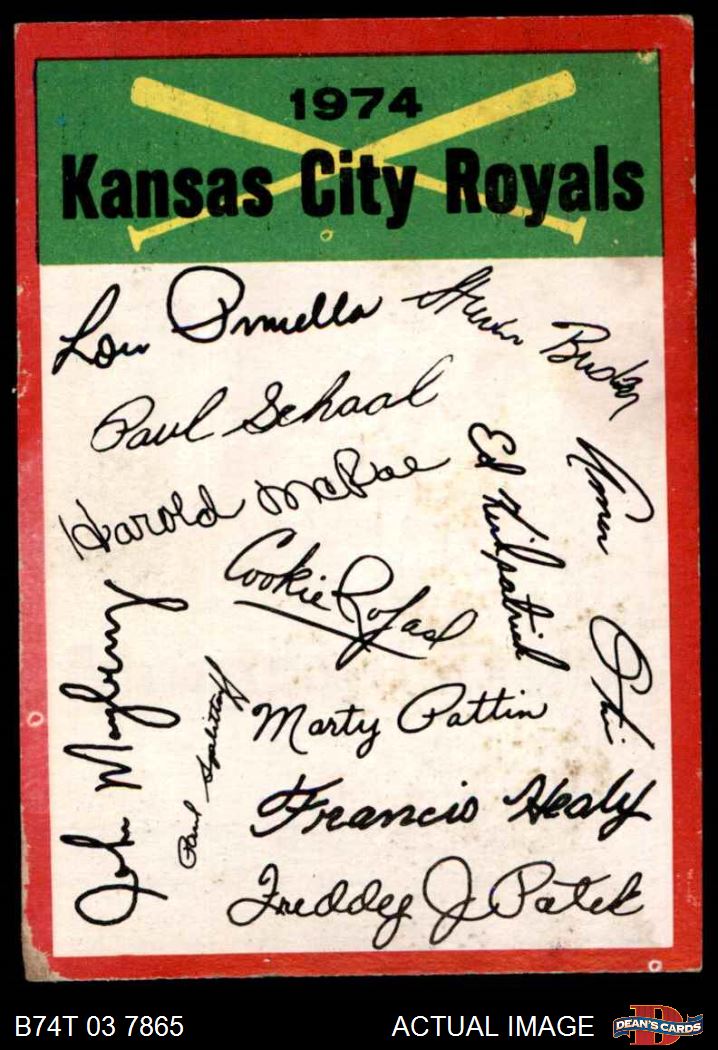 1974
Kansas City Royals
Lou Piniella
Steven Busby
Paul Schaal
Harold McRae
Ed Kirkpatrick
Amos Otis
Cookie Rojas
John Mayberry
Paul Splittorff
Marty Pattin
Francis Healy
Freddy J Patek
B74T 03 7865
ACTUAL IMAGE
D
DEAN'S CARDS